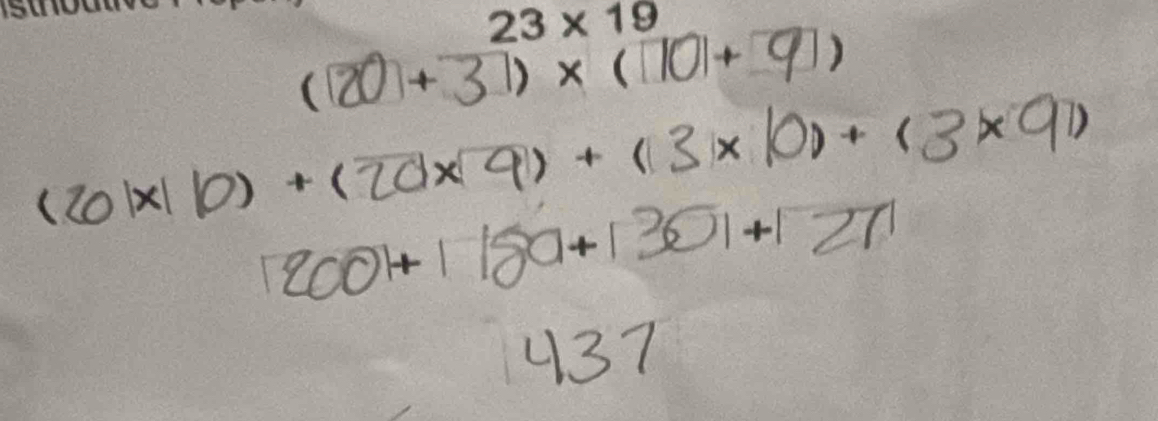 23 × 19
(20 + 3) × (10 + 9)
(20 × 10) + (20 × 9) + (3 × 10) + (3 × 9)
200 + 180 + 30 + 27
437